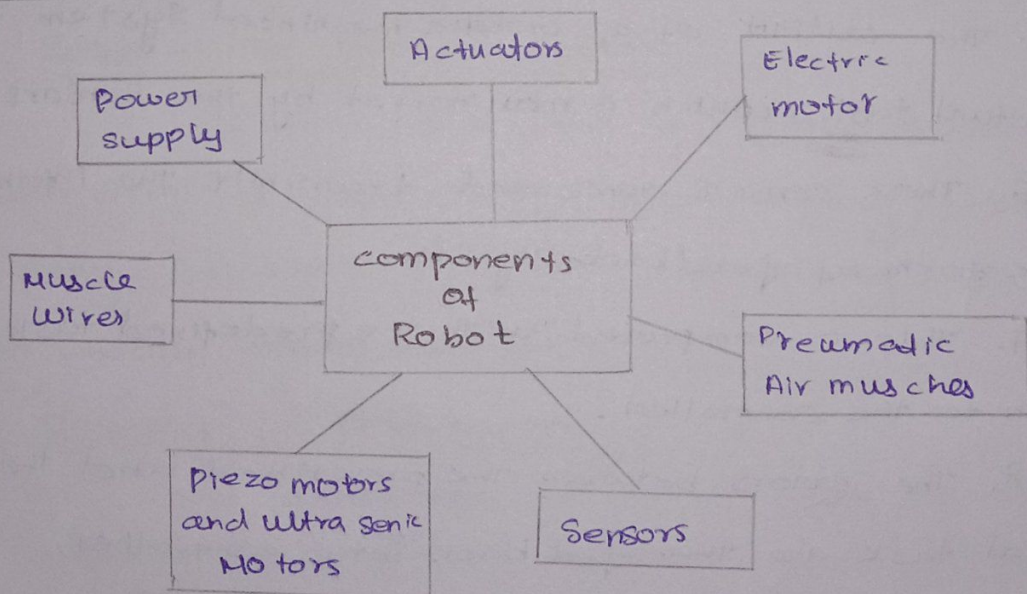 Actuators
Electric
motor
Power
supply
components
of
Robot
Muscle
Wires
Preumadic
Air musches
Piezo motors
and ultra senic
Motors
Sensors